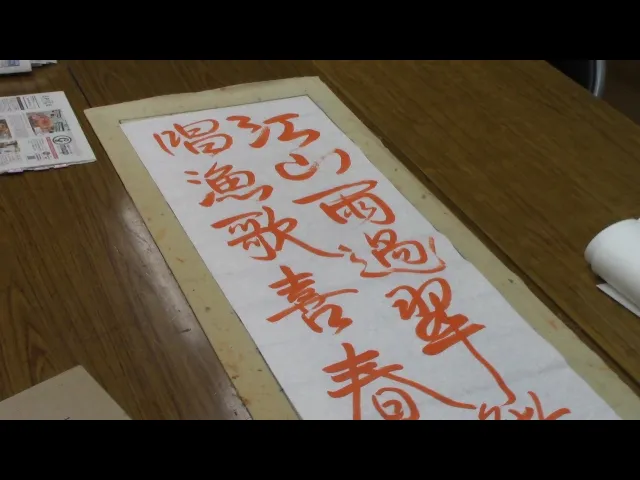 江山雨過翠
唱漁歌喜春